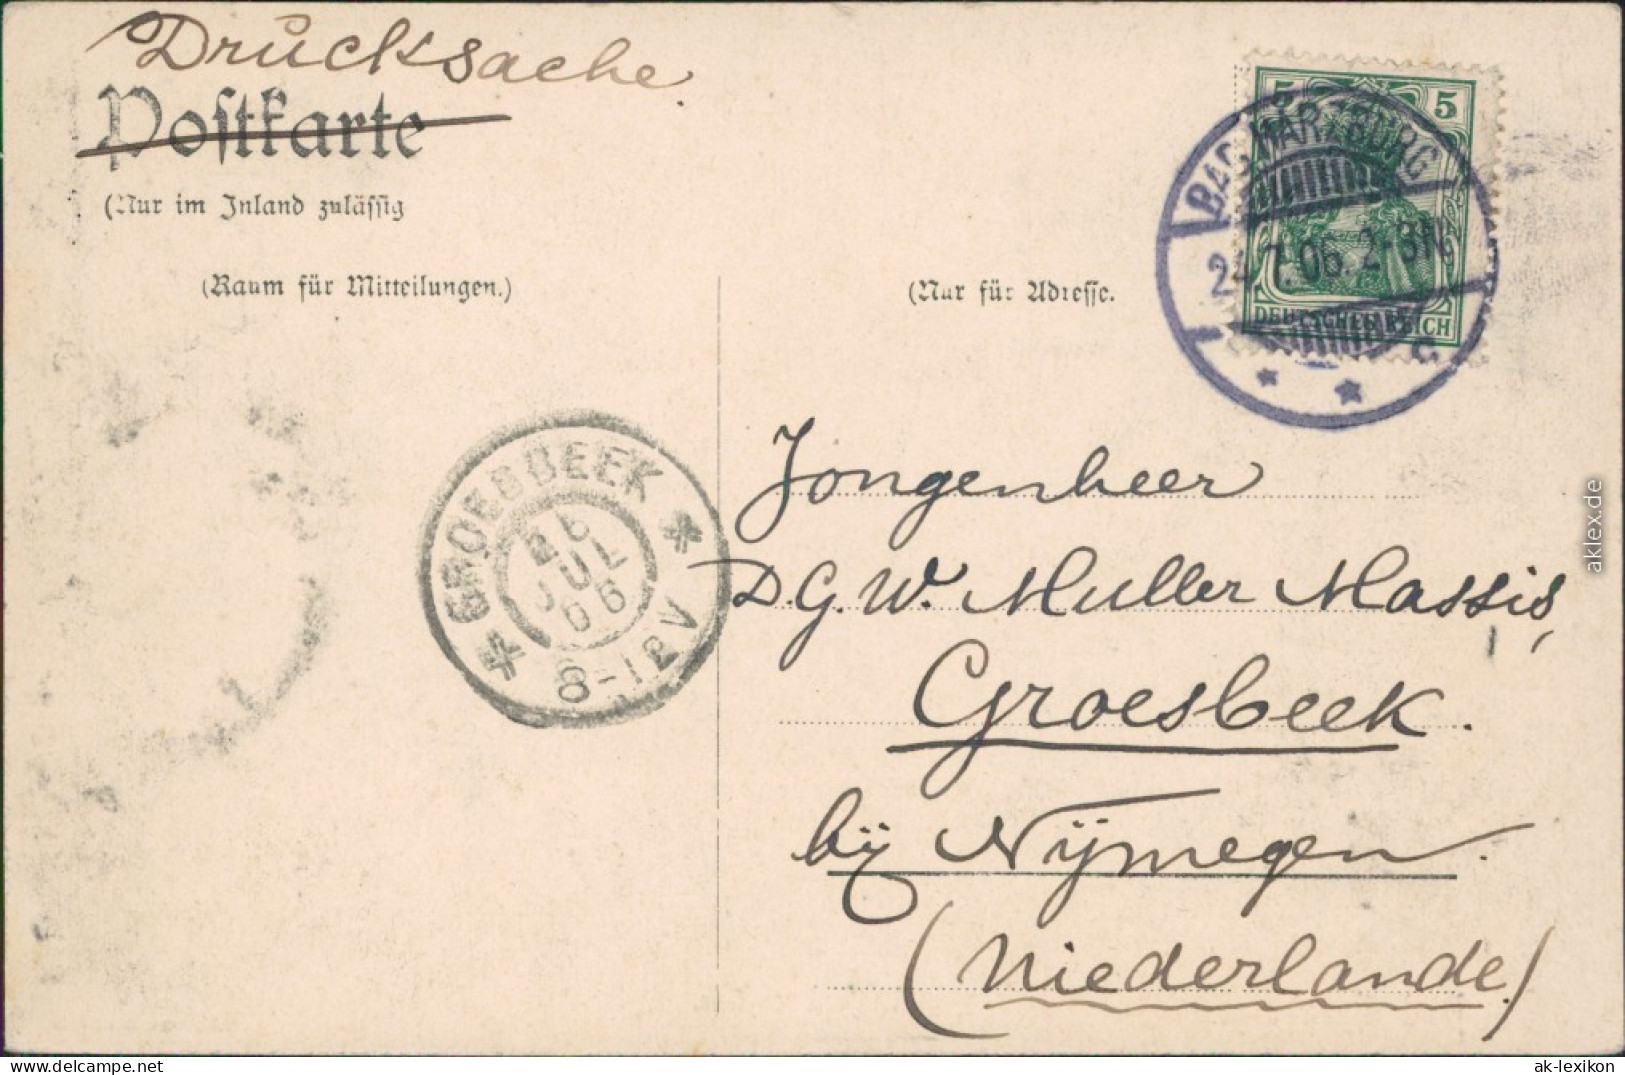 Drucksache.
Postkarte
(Nur im Inland zulässig
(Raum für Mitteilungen.)
(Nur für Adresse.
5 5
DEUTSCHES REICH
BAD HARZBURG
24.7.06.2-3N.
c.
* *
GROESBEEK
JUL
06
8-12V
Jongenheer
D.G.W. Muller Massis,
Groesbeek.
bij Nijmegen.
(Niederlande)
aklex.de
www.delcampe.net
ak-lexikon